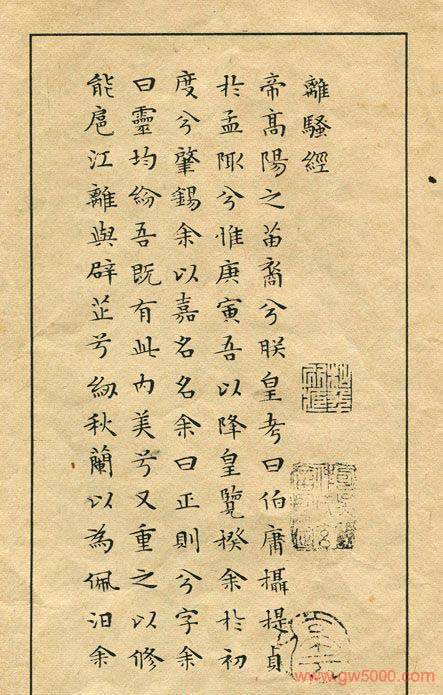 離騷經
帝高陽之苗裔兮朕皇考曰伯庸攝提貞
於孟陬兮惟庚寅吾以降皇覽揆余於初
度兮肇錫余以嘉名名余曰正則兮字余
曰靈均紛吾既有此內美兮又重之以修
能扈江離與辟芷兮紉秋蘭以為佩汨余
www.gw5000.com